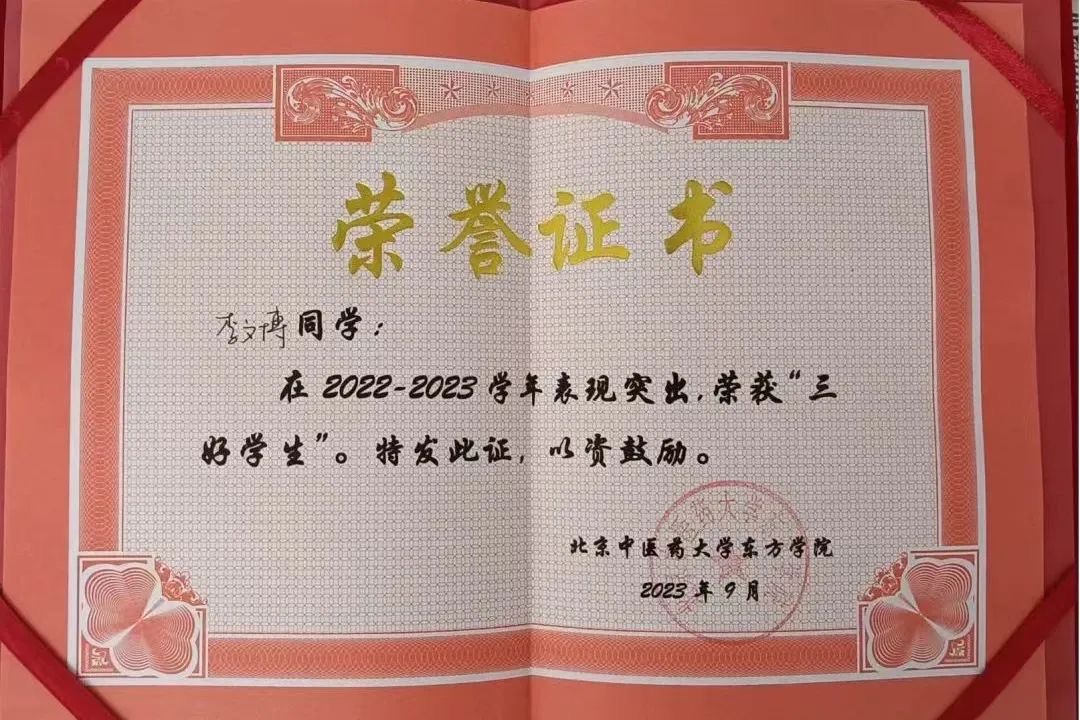 荣誉证书
李文博同学：
在2022-2023学年表现突出，荣获“三
好学生”。特发此证，以资鼓励。
北京中医药大学东方学院
2023年9月